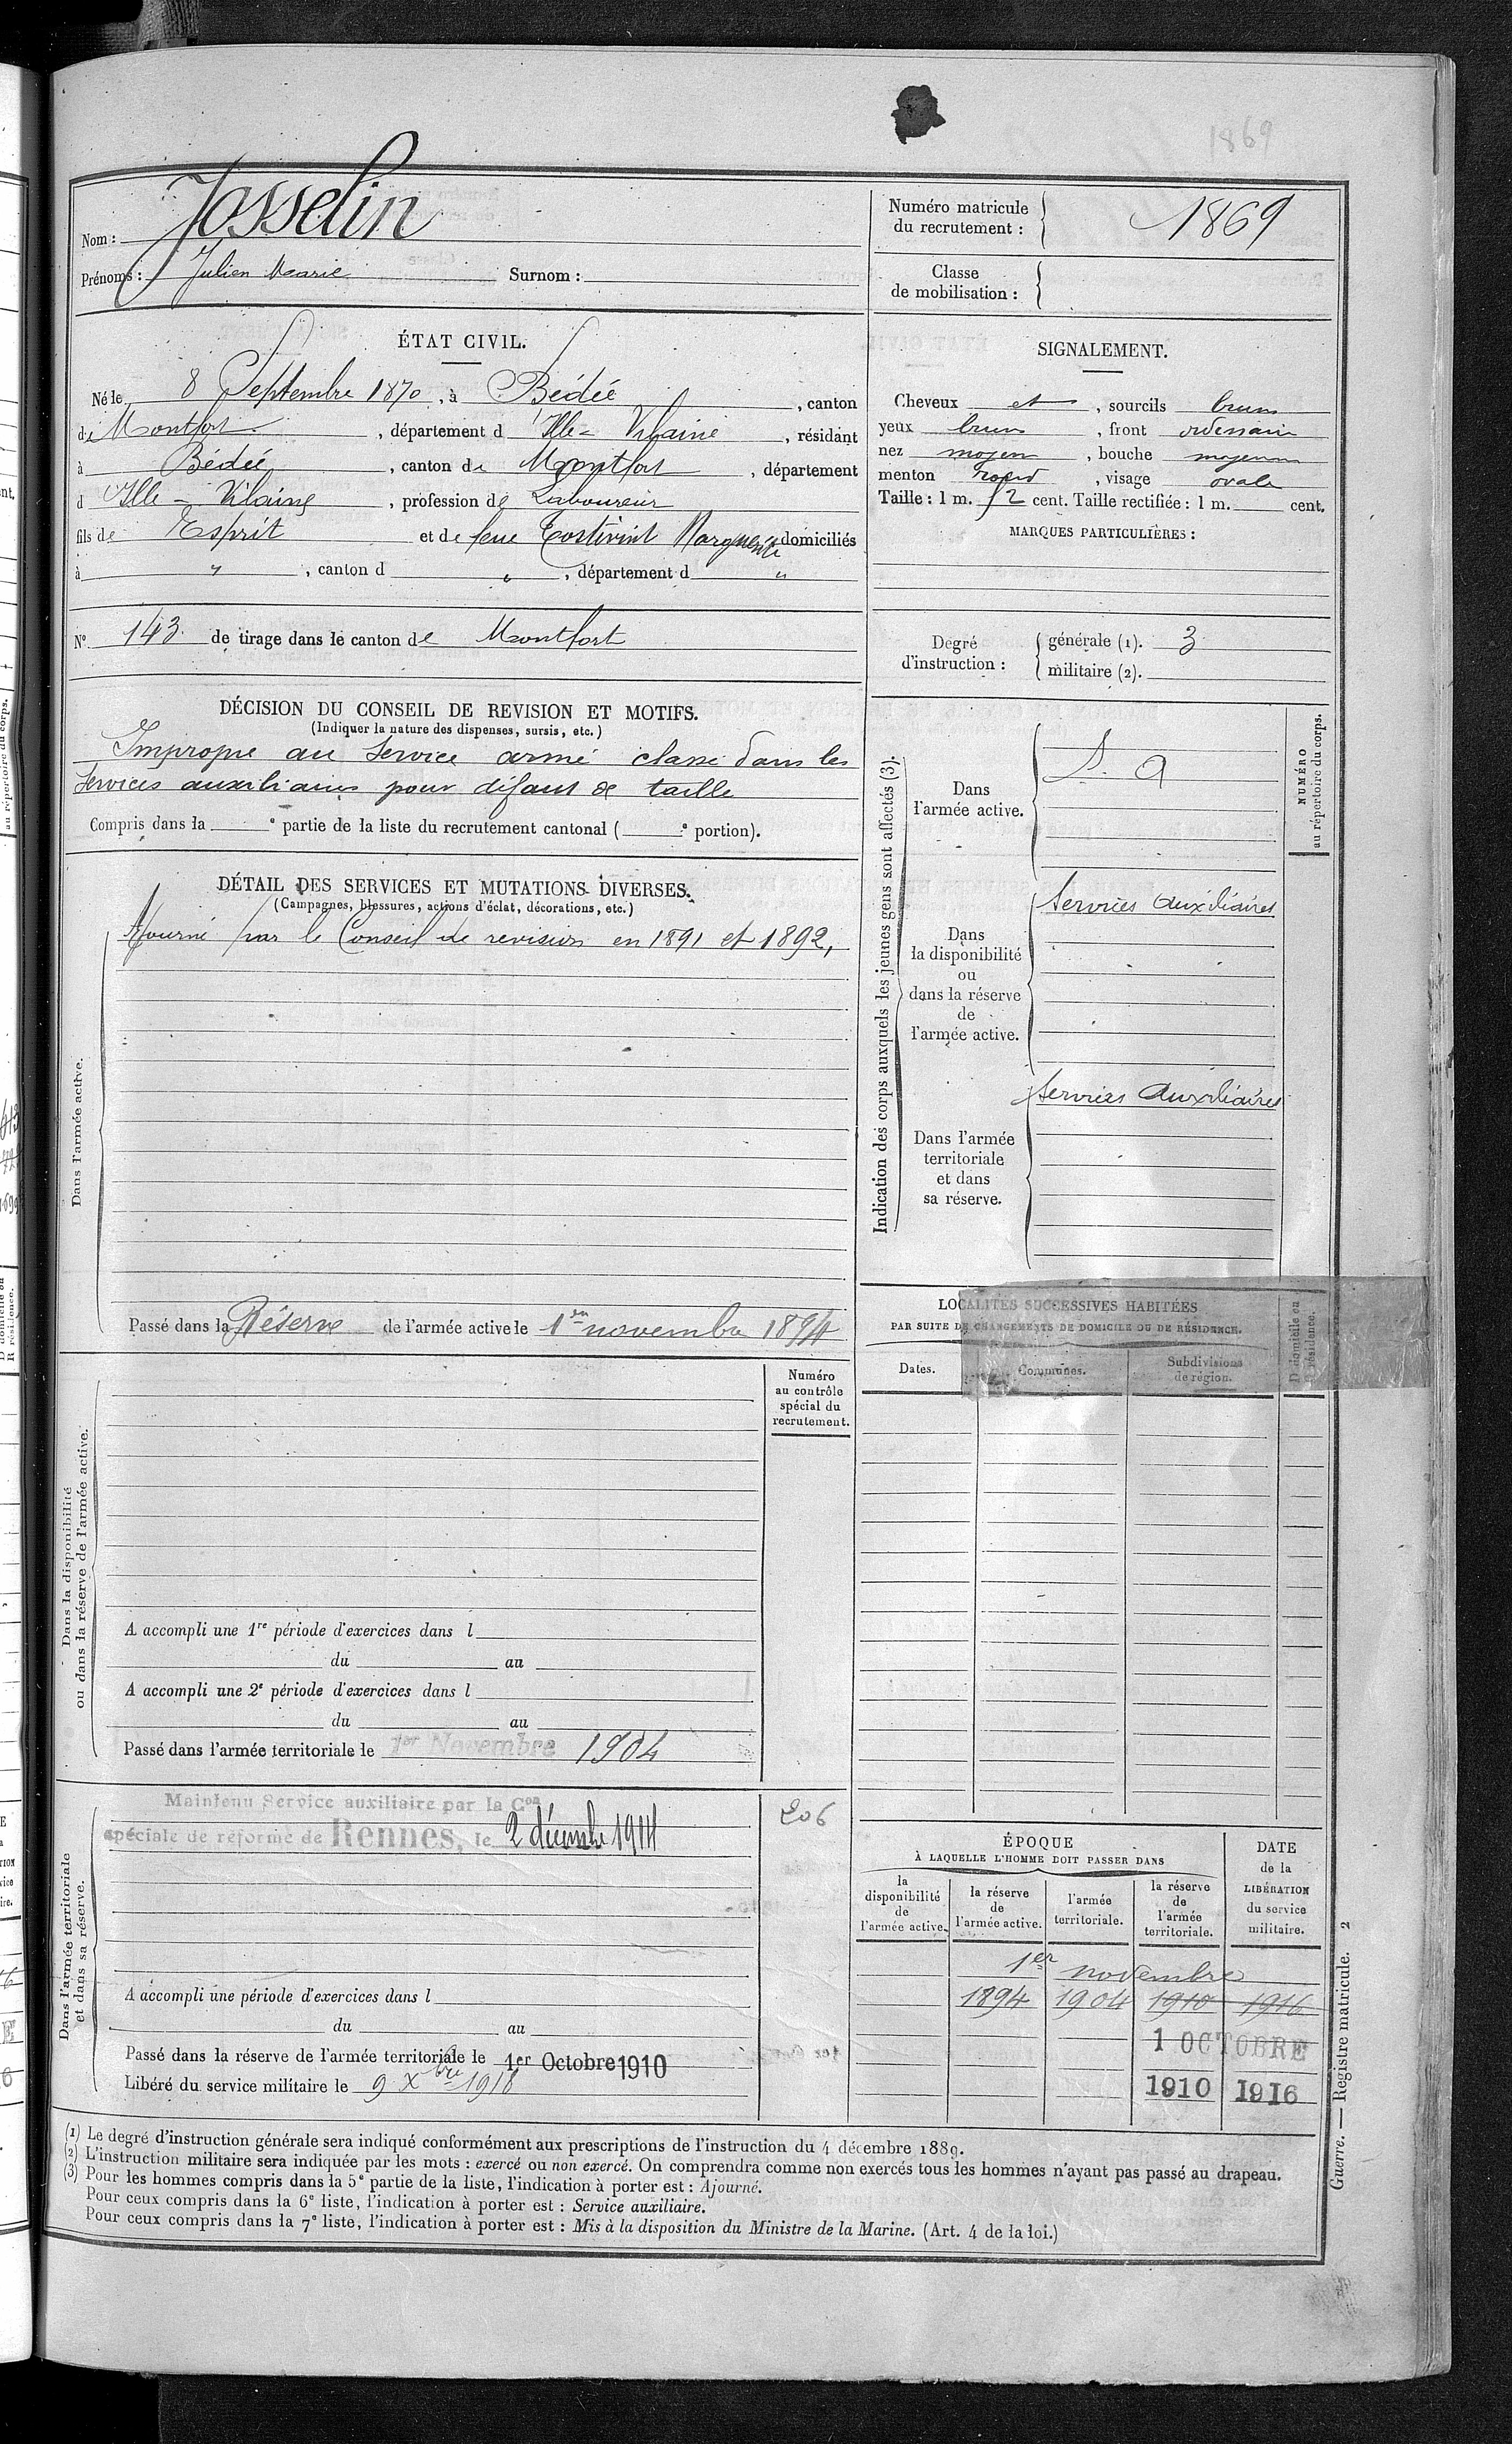 1869
Nom : Josselin
Prénoms : Julien Marie Surnom :
Numéro matricule
du recrutement : 1869
Classe
de mobilisation :
ÉTAT CIVIL.
Né le 8 Septembre 1870, à Bédée, canton
de Montfort, département d'Ille-Vilaine, résidant
à Bédée, canton de Montfort, département
d'Ille-Vilaine, profession de Laboureur
fils de Esprit et de feue Tostivint Marguerite domiciliés
à " , canton d " , département d "
SIGNALEMENT.
Cheveux et , sourcils bruns
yeux bruns , front ordinaire
nez moyen , bouche moyenne
menton rond , visage ovale
Taille : 1 m. 52 cent. Taille rectifiée : 1 m. cent.
MARQUES PARTICULIÈRES :
N° 143 de tirage dans le canton de Montfort
Degré
d'instruction :
générale (1). 3
militaire (2).
DÉCISION DU CONSEIL DE REVISION ET MOTIFS.
(Indiquer la nature des dispenses, sursis, etc.)
Impropre au service armé classé dans les
services auxiliaires pour défaut de taille
Compris dans la e partie de la liste du recrutement cantonal ( e portion).
DÉTAIL DES SERVICES ET MUTATIONS DIVERSES.
(Campagnes, blessures, actions d'éclat, décorations, etc.)
Dans l'armée active.
Ajourné par le Conseil de revision en 1891 et 1892,
Passé dans la Réserve de l'armée active le 1er novembre 1894
Indication des corps auxquels les jeunes gens sont affectés (3).
Dans
l'armée active.
S. A
NUMÉRO
au répertoire du corps.
Dans
la disponibilité
ou
dans la réserve
de
l'armée active.
Services Auxiliaires
Dans l'armée
territoriale
et dans
sa réserve.
Services Auxiliaires
LOCALITÉS SUCCESSIVES HABITÉES
PAR SUITE DE CHANGEMENTS DE DOMICILE OU DE RÉSIDENCE.
Dates. Communes. Subdivisions
de région.
D domicile ou
R résidence.
Numéro
au contrôle
spécial du
recrutement.
Dans la disponibilité
ou dans la réserve de l'armée active.
A accompli une 1re période d'exercices dans l
du au
A accompli une 2e période d'exercices dans l
du au
Passé dans l'armée territoriale le 1er Novembre 1904
Dans l'armée territoriale
et dans sa réserve.
Maintenu Service auxiliaire par la Con
spéciale de réforme de Rennes, le 2 décembre 1914
206
A accompli une période d'exercices dans l
du au
Passé dans la réserve de l'armée territoriale le 1er Octobre 1910
Libéré du service militaire le 9 Xbre 1918
ÉPOQUE
À LAQUELLE L'HOMME DOIT PASSER DANS
la
disponibilité
de
l'armée active.
la réserve
de
l'armée active.
l'armée
territoriale.
la réserve
de
l'armée
territoriale.
DATE
de la
LIBÉRATION
du service
militaire.
1er novembre
1894 1904 1910 1916
1 OCTOBRE
1910 1916
Guerre. — Registre matricule. 2
(1) Le degré d'instruction générale sera indiqué conformément aux prescriptions de l'instruction du 4 décembre 1889.
(2) L'instruction militaire sera indiquée par les mots : exercé ou non exercé. On comprendra comme non exercés tous les hommes n'ayant pas passé au drapeau.
(3) Pour les hommes compris dans la 5e partie de la liste, l'indication à porter est : Ajourné.
Pour ceux compris dans la 6e liste, l'indication à porter est : Service auxiliaire.
Pour ceux compris dans la 7e liste, l'indication à porter est : Mis à la disposition du Ministre de la Marine. (Art. 4 de la loi.)